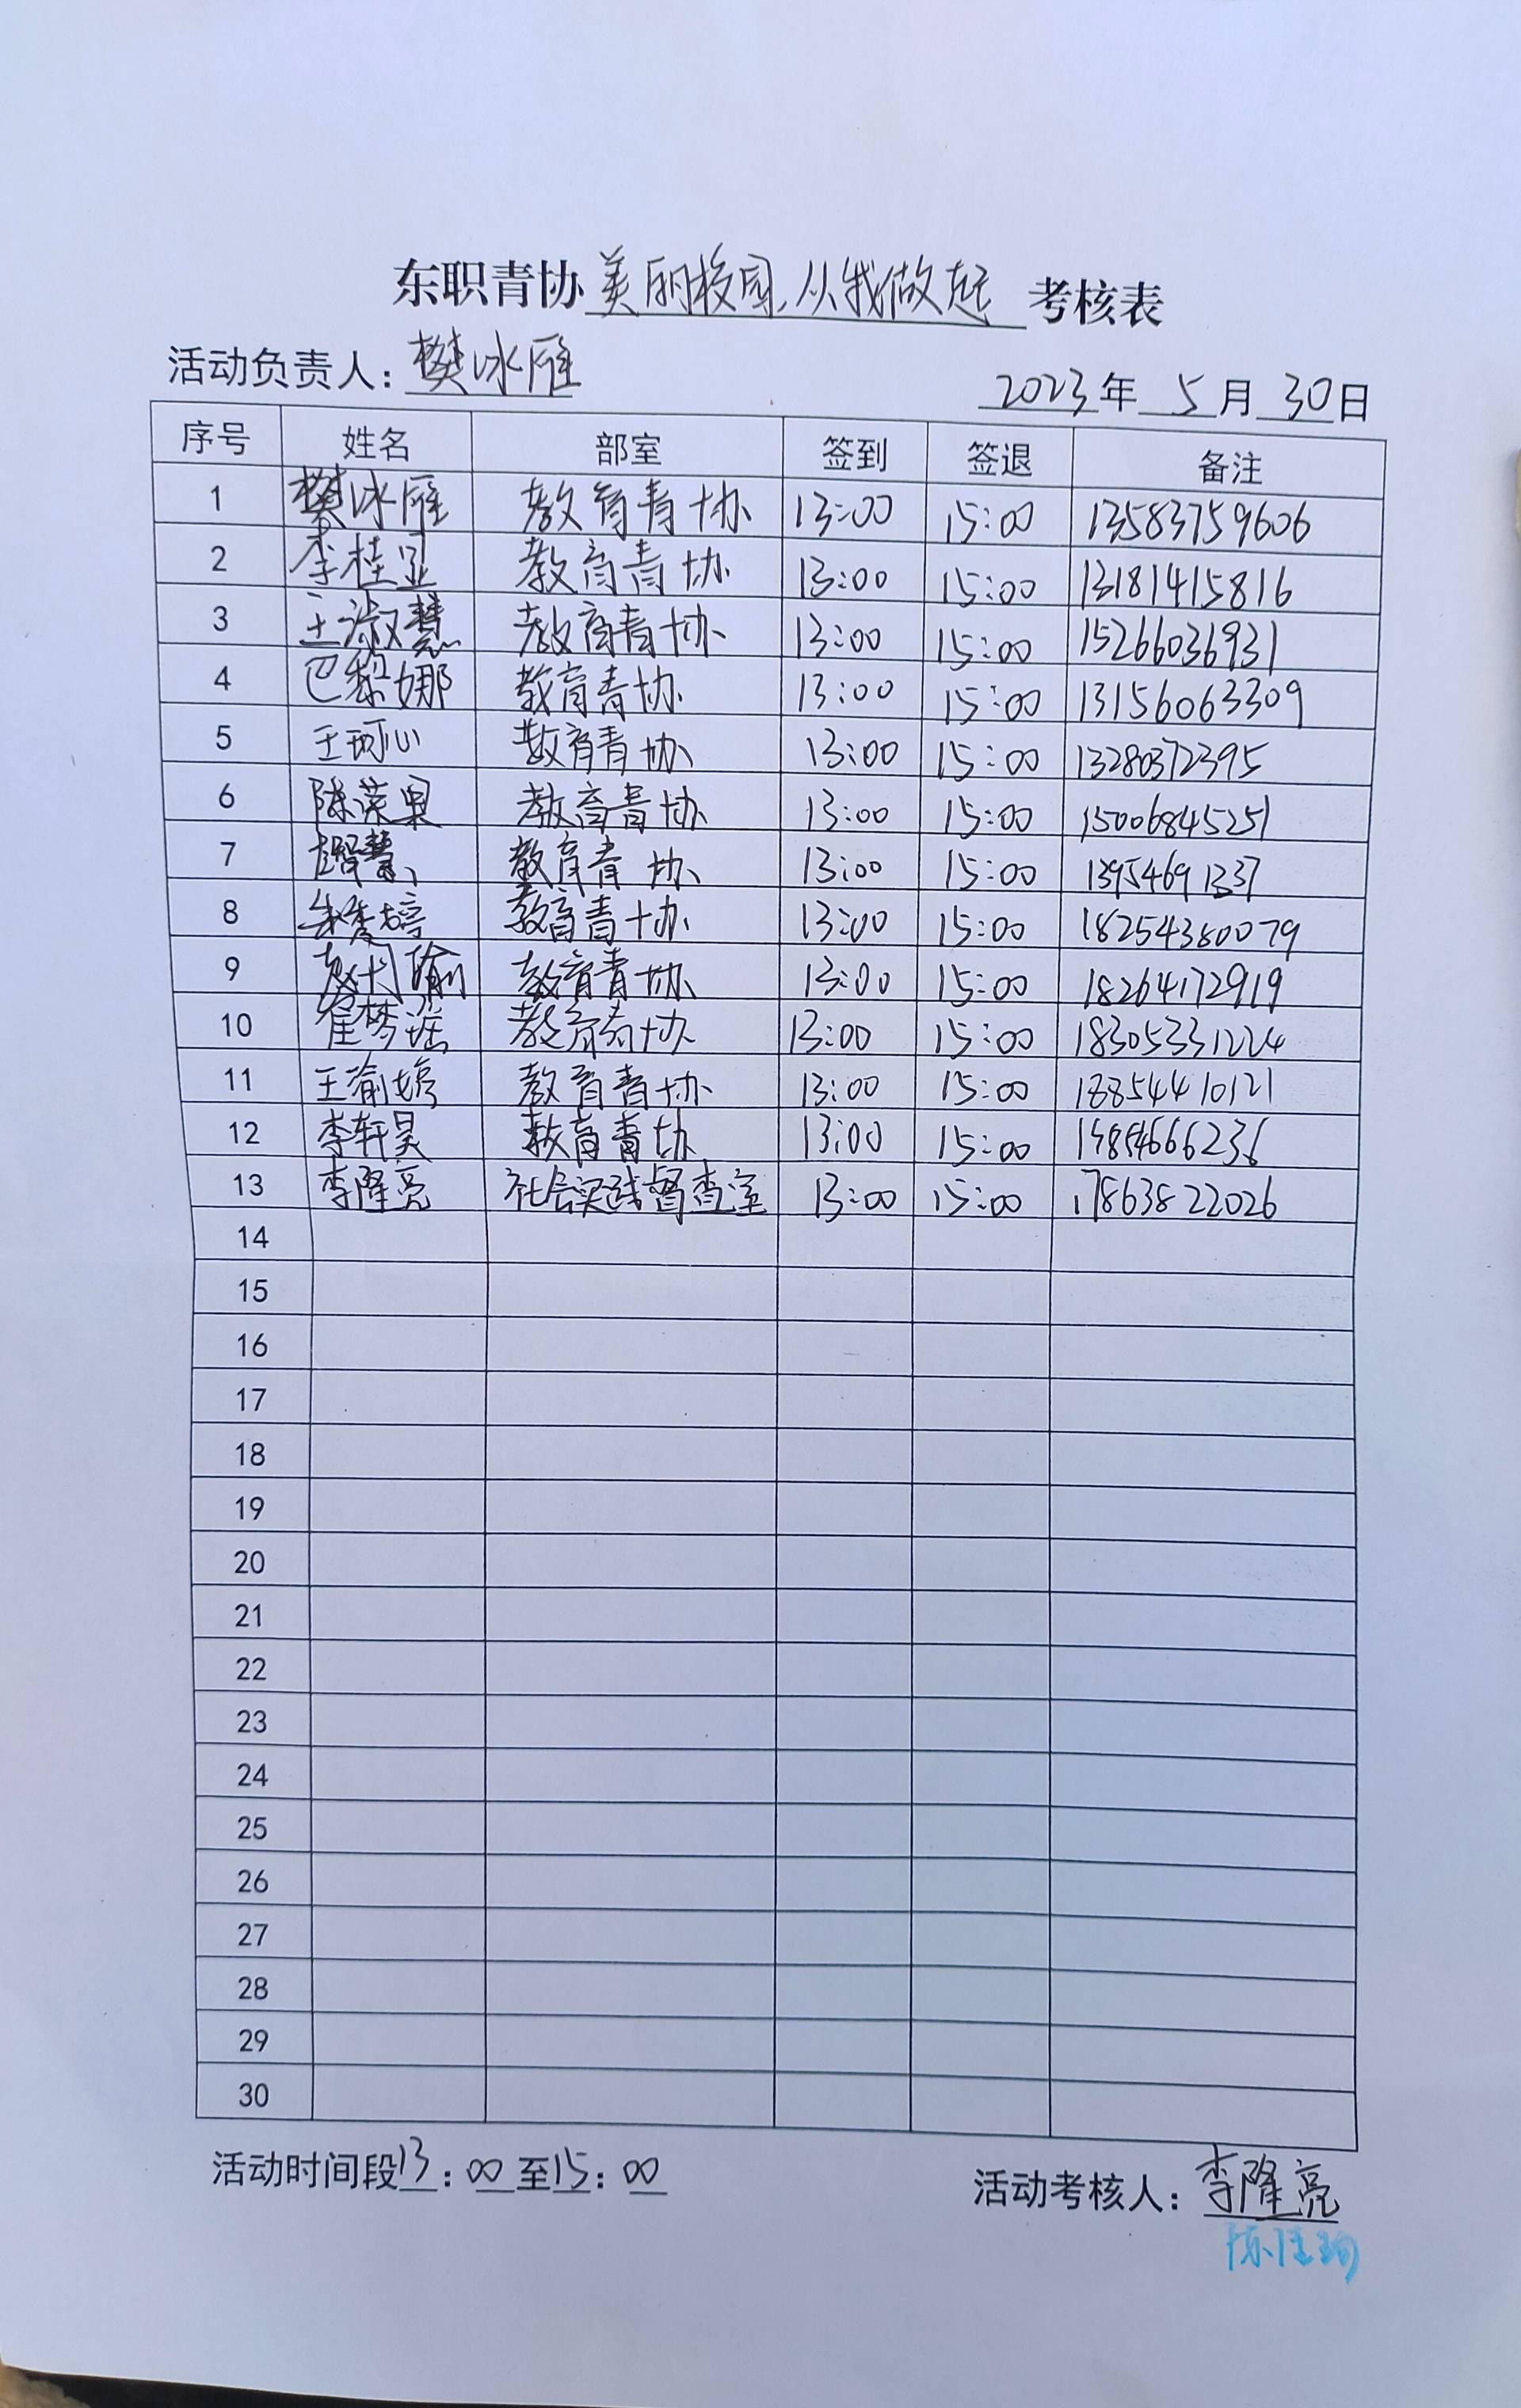 东职青协美丽校园,从我做起考核表
活动负责人：樊冰雁 2023年5月30日
序号 姓名 部室 签到 签退 备注
1 樊冰雁 教育青协 13:00 15:00 13583759606
2 李桂显 教育青协 13:00 15:00 13181415816
3 王淑慧 教育青协 13:00 15:00 15266036931
4 巴黎娜 教育青协 13:00 15:00 13156063309
5 王珂心 教育青协 13:00 15:00 13280372395
6 陈荣果 教育青协 13:00 15:00 15006845251
7 教育青协 13:00 15:00 13954691337
8 教育青协 13:00 15:00 18254380079
9 教育青协 13:00 15:00 18264172919
10 崔梦瑶 教育青协 13:00 15:00 18305331224
11 王瑜婷 教育青协 13:00 15:00 18854410121
12 李轩昊 教育青协 13:00 15:00
13 李隆亮 社会实践督查室 13:00 15:00 17863822026
14
15
16
17
18
19
20
21
22
23
24
25
26
27
28
29
30
活动时间段13：00至15：00 活动考核人：李隆亮